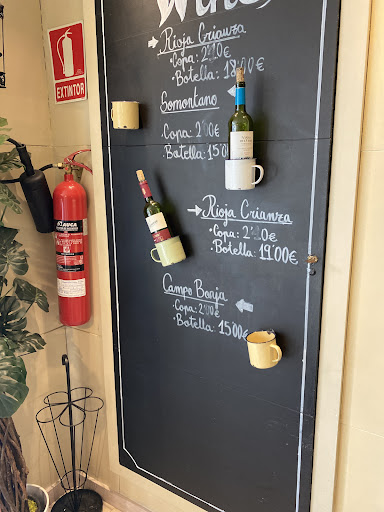 Wines
Rioja Crianza
• Copa: 2'20€
• Botella: 18'00€
EXTINTOR
Somontano
• Copa: 2'00€
• Botella: 15'0
Rioja Crianza
• Copa: 2'20€
• Botella: 19'00€
Campo Borja
• Copa: 2'00€
• Botella: 15'00€